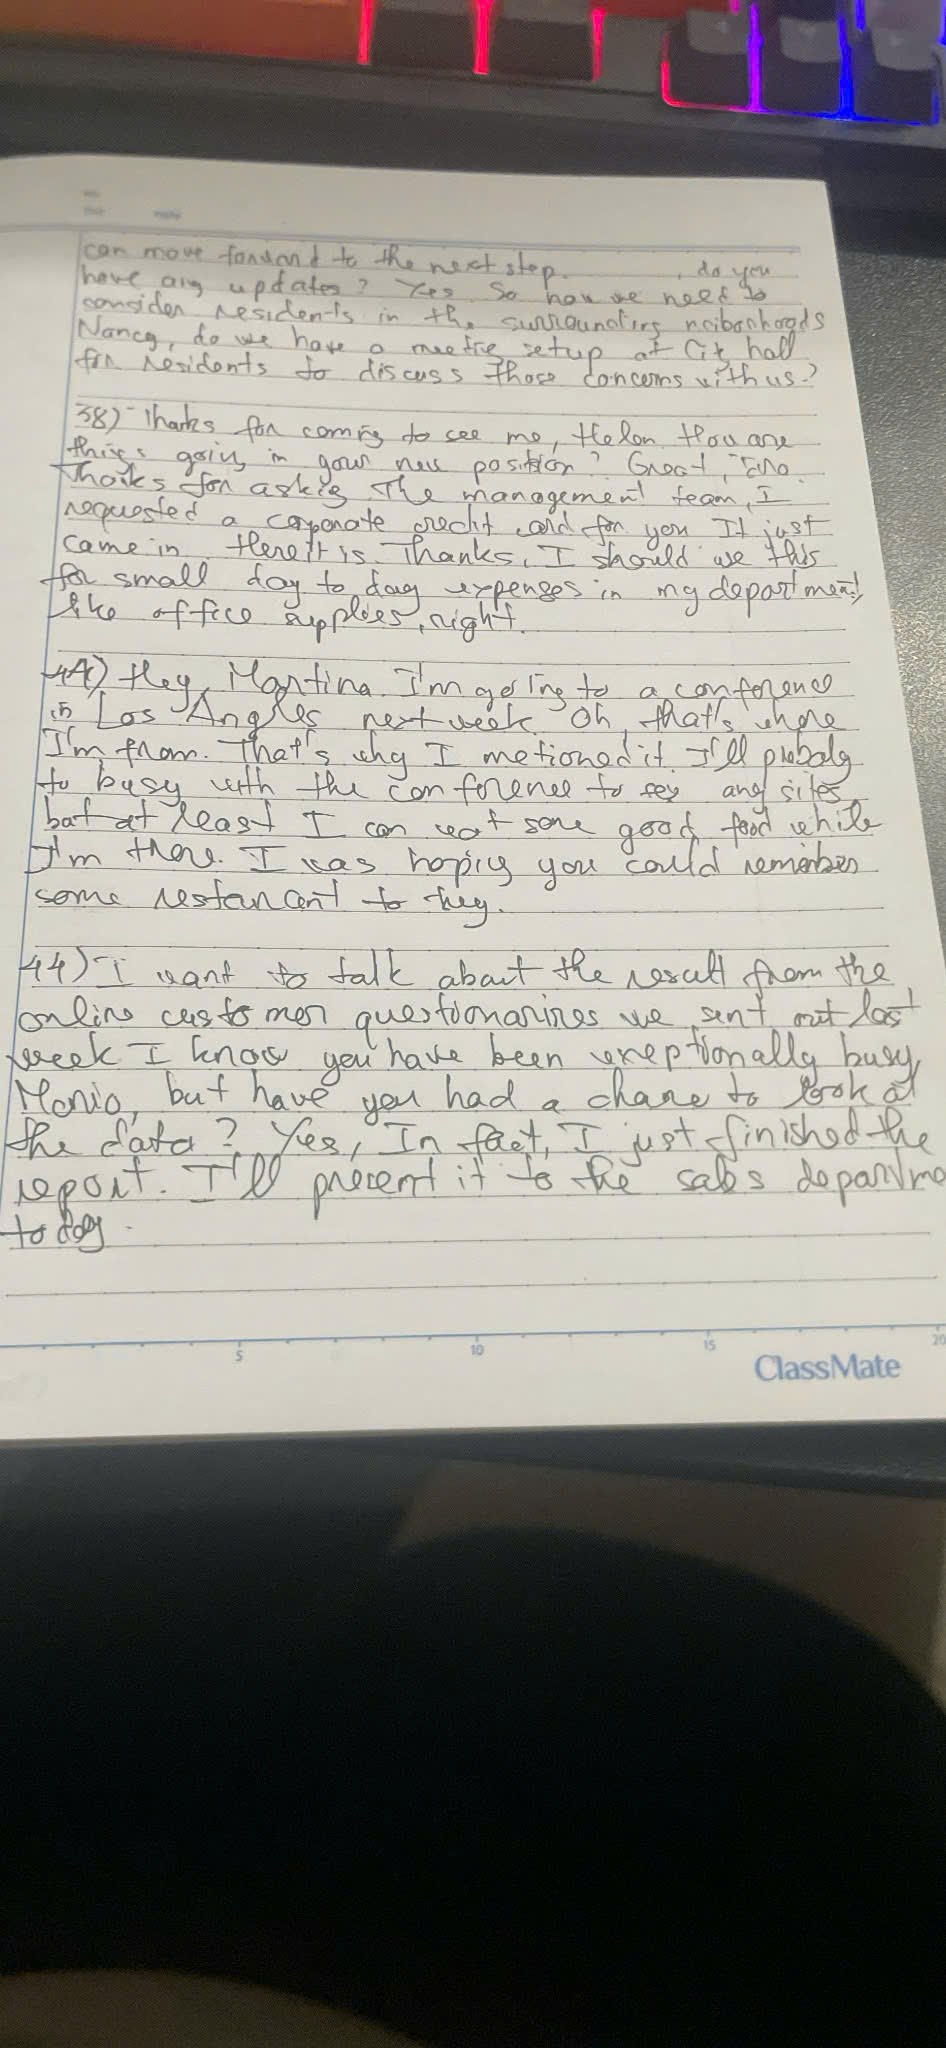 can move forward to the next step. , do you
have any updates? Yes. So now we need to
consider residents in the surrounding neiborhoods
Nancy, do we have a meetig setup at City hall
for residents to discuss those concerns with us?
38) Thanks for coming to see me, Helen. How are
things going in your new position? Great,
Thanks for askig. The management team, I
requested a corporate credit card for you It just
came in. Here it is. Thanks, I should use this
for small day to day expenses in my department,
like office supplies, right.
Hey, Martina. I'm going to a conference
in Los Angles next week. Oh, that's where
I'm from. That's why I metioned it. I'll probaly
to busy with the conference to any sites,
but at least I can eat some good food while
I'm there. I was hoping you could remember
some restaurant to
44) I want to talk about the result from the
online customer questionarines we sent out last
week I know you have been exeptionally busy,
Mario, but have you had a chane to look at
the data? Yes, In fact, I just finished the
report. I'll precent it to the sales departme
today.
5 10 15 20
ClassMate